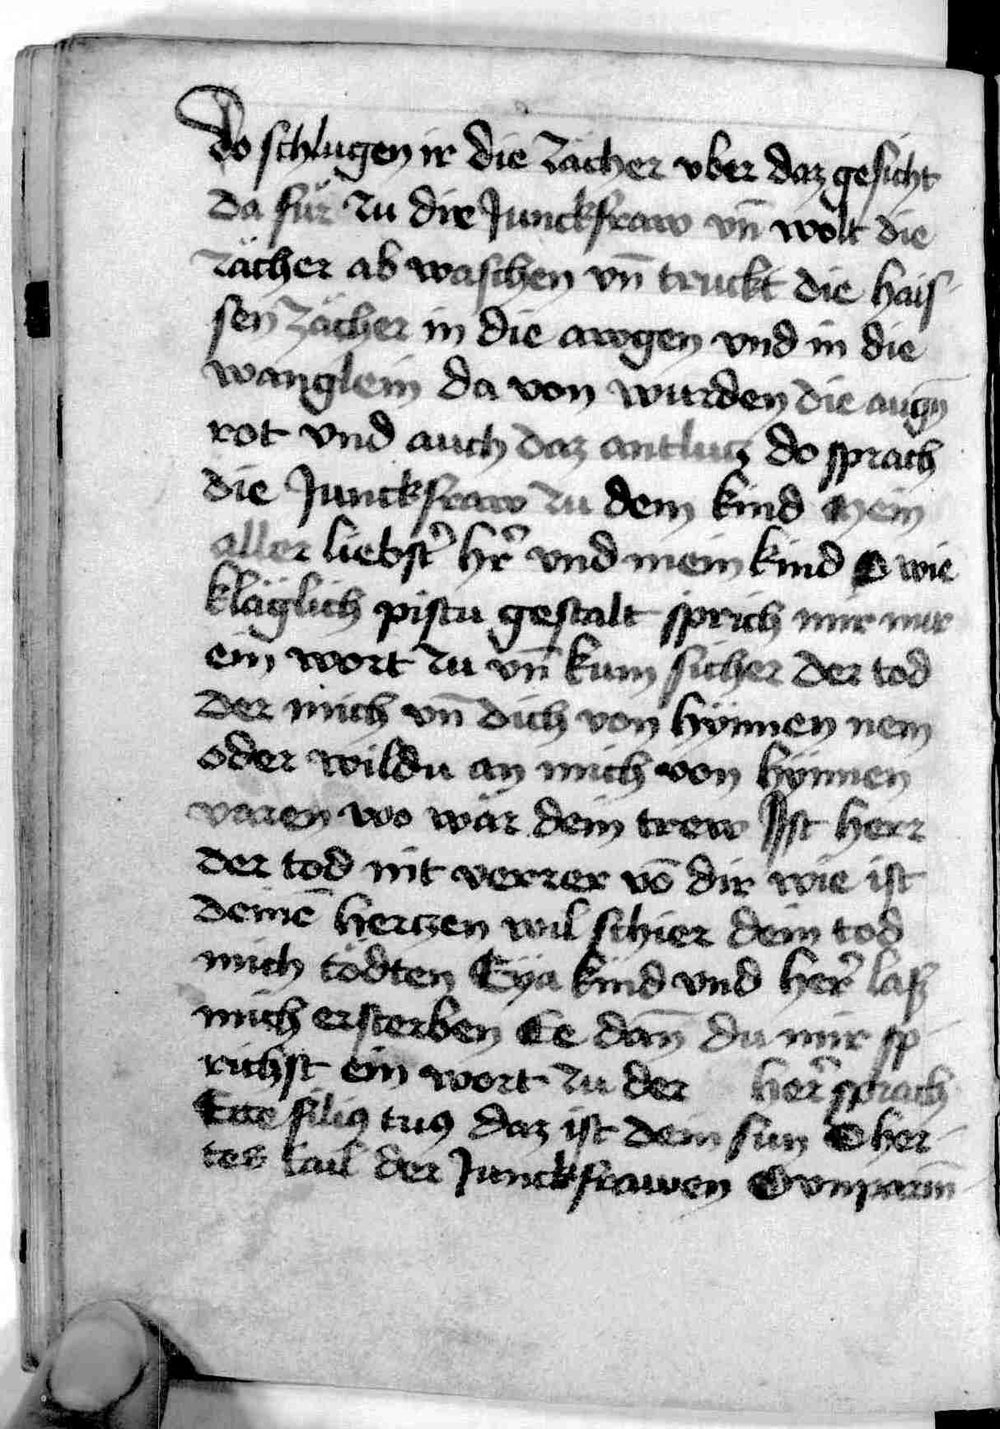 Do schlugen ir die zächer vber daz gesicht
da für zu die Junckfraw vn̄ wolt die
zächer ab waschen vn̄ truckt die hais-
sen zächer in die awgen vnd in die
wanglein da von wurden die augn̄
rot vnd auch daz antlutz do sprach
die Junckfraw zu dem kind Mein
aller liebst' h'r vnd mein kind O wie
kläglich pistu gestalt sprich mir nur
ein wort zu vn̄ kum sicher der tod
Der mich vn̄ dich von hÿnnen nem
oder wildu an mich von hÿnnen
varen wo wär dein trew Ist herr
der tod nit verrer vō dir wie ist
deinē hertzen wil schier dein tod
mich tödten Eÿa kind vnd her' laß
mich ersterben Ee dan̄ du mir sp-
richst ein wort zu der her' sprach
Ecce filiꝰ tuꝰ daz ist dein sun O her-
tes tail der Junckfrawen O vnparm̄-